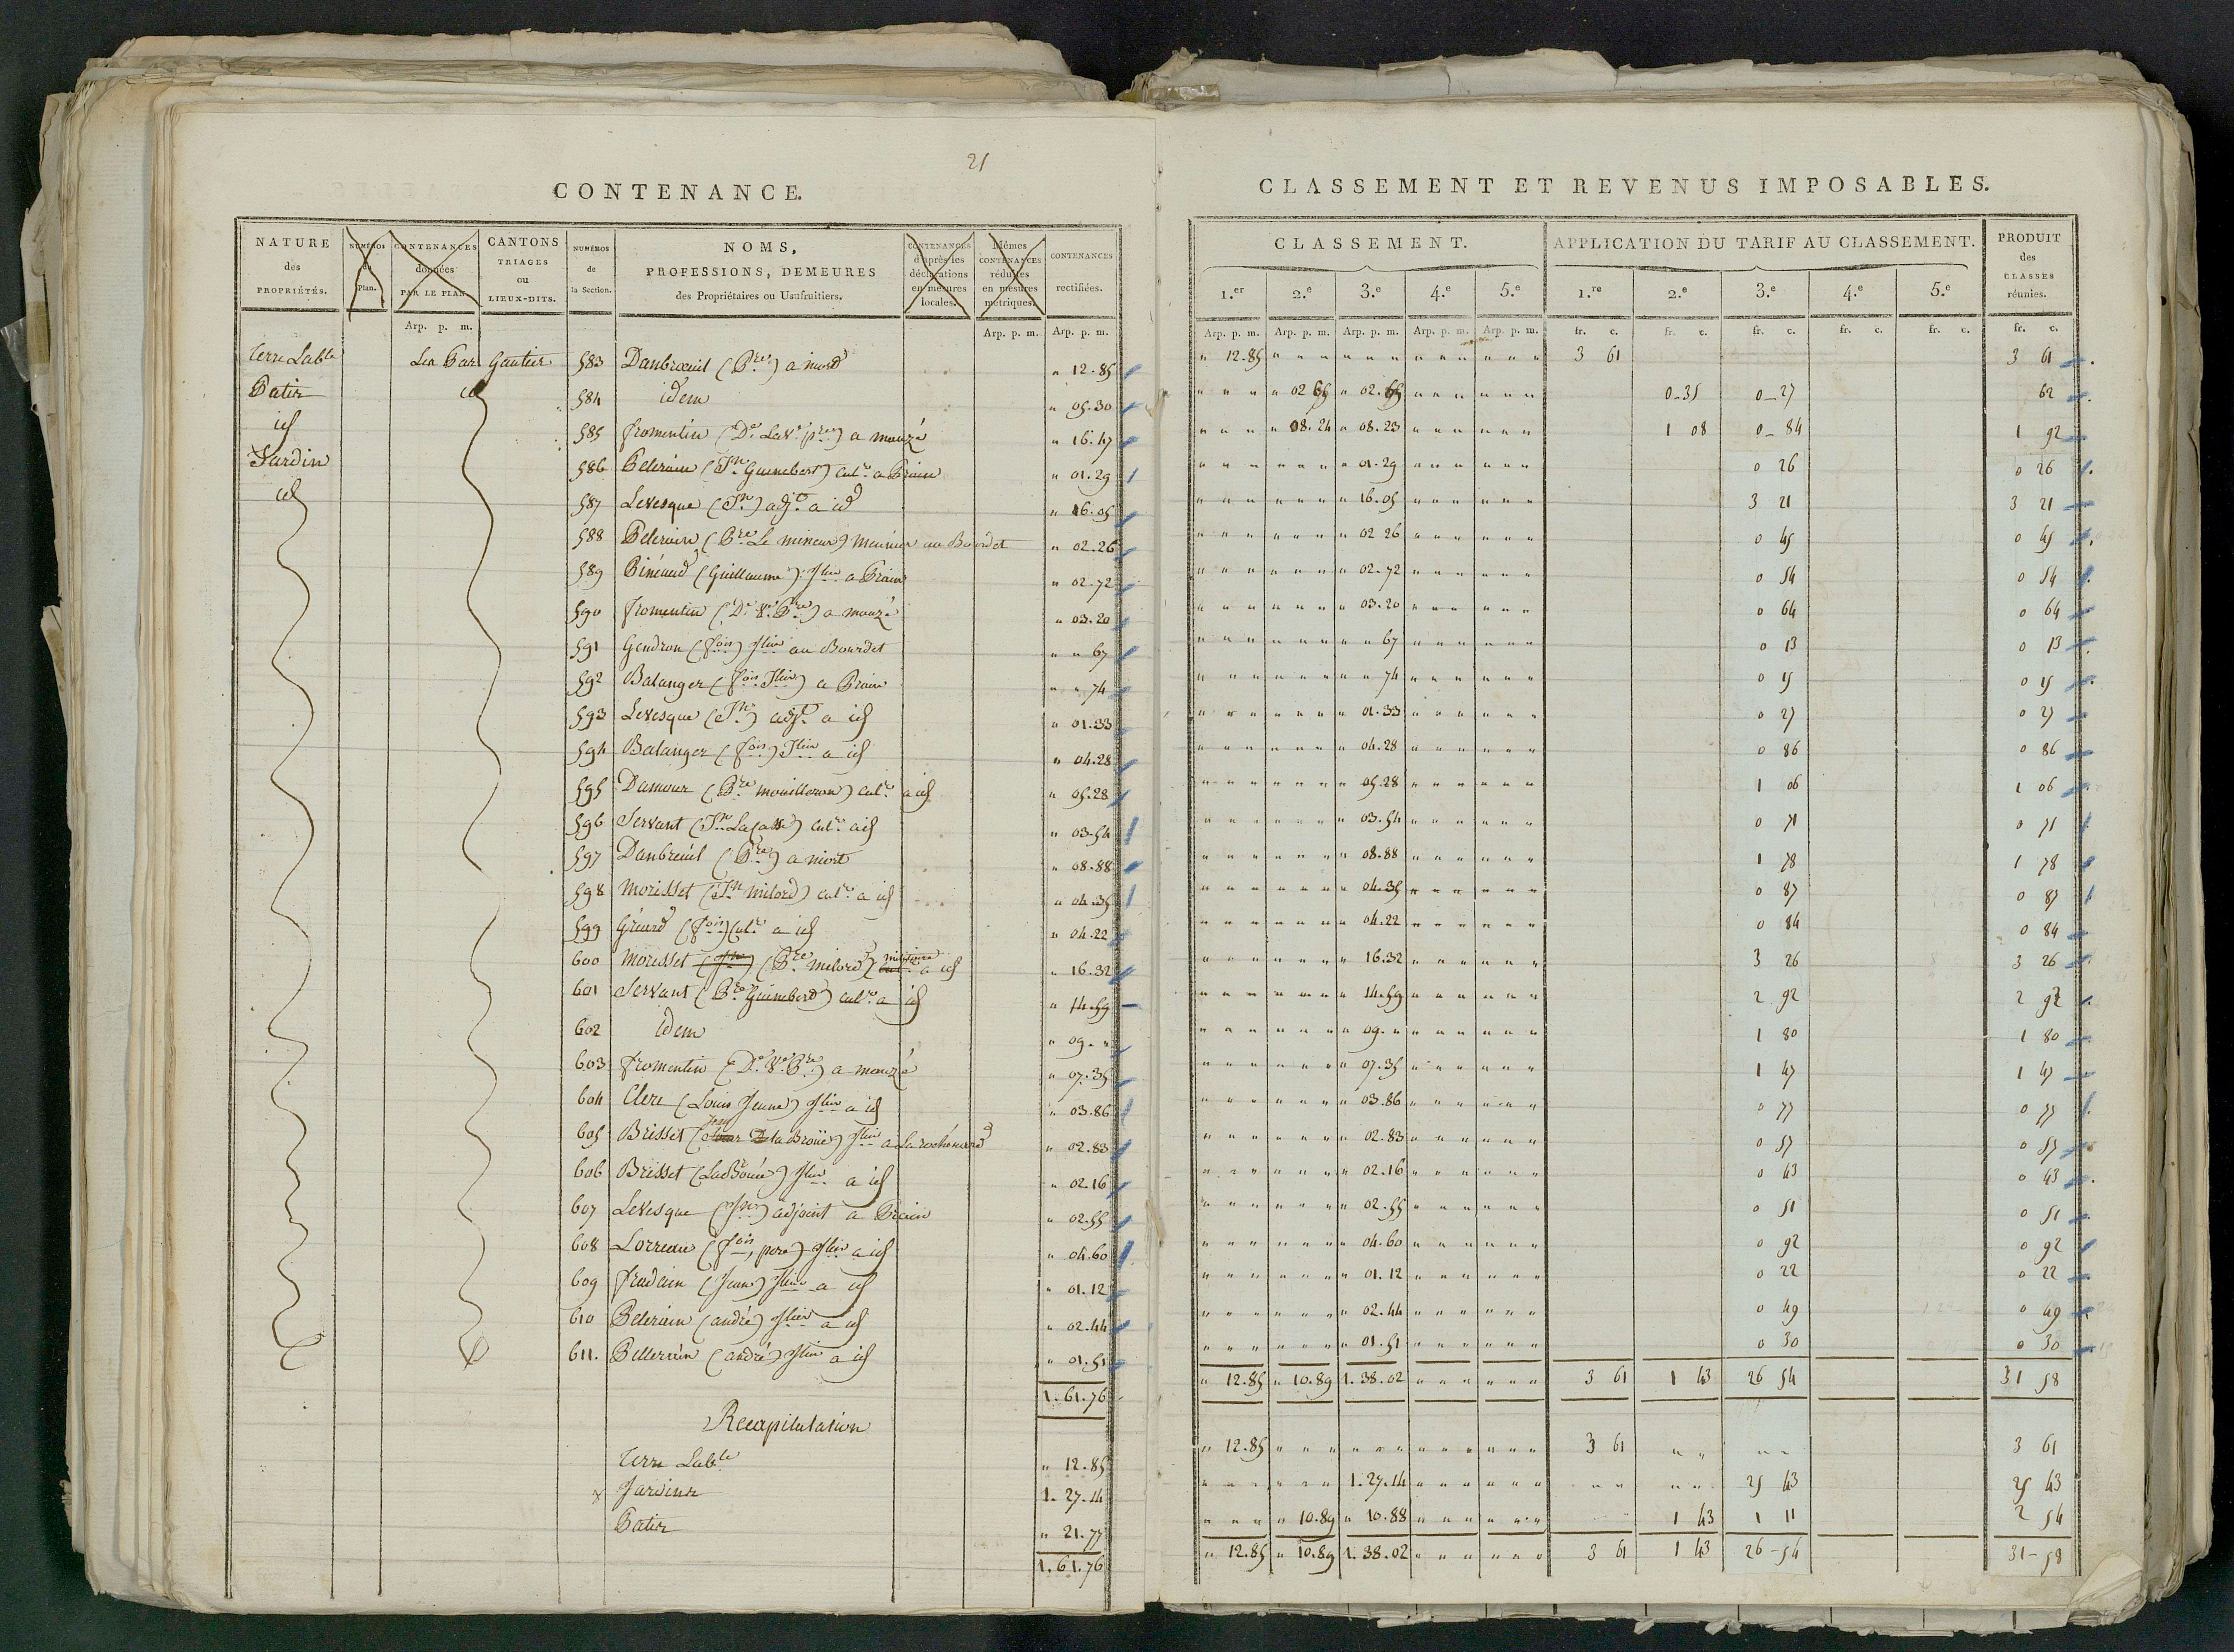 21
CONTENANCE.
NATURE des PROPRIÉTÉS. NUMÉROS du Plan. CONTENANCES données PAR LE PLAN CANTONS TRIAGES ou LIEUX-DITS. NUMÉROS de la Section. NOMS, PROFESSIONS, DEMEURES des Propriétaires ou Usufruitiers. CONTENANCES d'après les déclarations en mesures locales. Mêmes CONTENANCES réduites en mesures métriques. CONTENANCES rectifiées.
Arp. p. m. Arp. p. m. Arp. p. m.
Terre Lable Gautier 583 Danbreuil (Pre) a niord " 12.85
Patis id 584 idem " 05.30
id 585 fromentin (De La Ve pre) a mauzé " 16.47
Jardin 586 Pelerain (Jn Guinebert) culr a Prain " 01.29
id 587 Levesque (Jn) adjt a id " 16.05
588 Pelerain (Pre Le mineur) meunier au Bourdet " 02.26
589 Pineaud (Guillaume) Jlier a Prain " 02.72
590 fromentin (De Ve Pre) a mauzé " 03.20
591 Gendron (fois) Jlier au Bourdet " " 67
592 Balanger (fois Jlier) a Prain " " 74
593 Levesque (Jn) adjt a id " 01.33
594 Balanger (fois) Jlier a id " 04.28
595 Damour (Pre mouilleron) culr a id " 05.28
596 Servant (Jn Lacasse) culr a id " 03.54
597 Danbreuil (Pre) a niort " 08.88
598 Morisset (Jn milord) culr a id " 04.35
599 Géard (fois) Culr a id " 04.22
600 Morisset (Pre milord) militaire a id " 16.32
601 Servant (Pre Guinebert) culr a id " 14.59
602 idem " 09. "
603 fromentin (De Ve Pre) a mauzé " 07.35
604 Clere (Louis Jeune) Jlier a id " 03.86
605 Brisset (Jean la Broüe) Jlier a La rochénard " 02.83
606 Brisset (LaBrouée) Jlier a id " 02.16
607 Levesque (Jn) adjoint a Prain " 02.55
608 Lorreau (fois, pere) Jlier a id " 04.60
609 fradain (Jean) Jlier a id " 01.12
610 Pelerain (andré) Jlier a id " 02.44
611. Pellerain (andré) Jlier a id " 01.51
1.61.76
Recapitulation
Terre Lable " 12.85
x Jardins 1.27.14
Patis " 21.77
1.61.76
CLASSEMENT ET REVENUS IMPOSABLES.
CLASSEMENT. APPLICATION DU TARIF AU CLASSEMENT. PRODUIT des CLASSES réunies.
1.er 2.e 3.e 4.e 5.e 1.re 2.e 3.e 4.e 5.e
Arp. p. m. Arp. p. m. Arp. p. m. Arp. p. m. Arp. p. m. fr. c. fr. c. fr. c. fr. c. fr. c. fr. c.
" 12.85 3 61 3 61
" 02 65 " 02.65 0-35 0-27 62
" 08.24 " 08.23 1 08 0-84 1 92
" 01.29 0 26 0 26
" 16.05 3 21 3 21
" 02 26 0 45 0 45
" 02.72 0 54 0 54
" 03.20 0 64 0 64
" " 67 0 13 0 13
" " 74 0 15 0 15
" 01.33 0 27 0 27
" 04.28 0 86 0 86
" 05.28 1 06 1 06
" 03.54 0 71 0 71
" 08.88 1 78 1 78
" 04.35 0 87 0 87
" 04.22 0 84 0 84
" 16.32 3 26 3 26
" 14.59 2 92 2 92
" 09. " 1 80 1 80
" 07.35 1 47 1 47
" 03.86 0 77 0 77
" 02.83 0 57 0 57
" 02.16 0 43 0 43
" 02.55 0 51 0 51
" 04.60 0 92 0 92
" 01.12 0 22 0 22
" 02.44 0 49 0 49
" 01.51 0 30 0 30
" 12.85 " 10.89 1.38.02 3 61 1 43 26 54 31 58
" 12.85 3 61 3 61
1.27.14 25 43 25 43
" 10.89 " 10.88 1 43 1 11 2 54
" 12.85 " 10.89 1.38.02 3 61 1 43 26-54 31-58